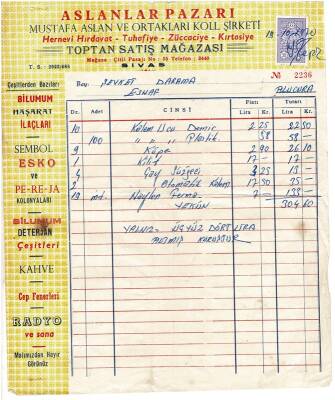 ASLANLAR PAZARI
MUSTAFA ASLAN VE ORTAKLARI KOLL. ŞİRKETİ
Hernevi Hırdavat - Tuhafiye - Züccaciye - Kırtasiye
TOPTAN SATIŞ MAĞAZASI
Mağaza : Çitil Pasajı No : 55 Telefon : 2440
T. S.
SİVAS
№ 2236
Çeşitlerden Bazıları
BİLUMUM
HAŞARAT
İLAÇLARI
SEMBOL
ESKO
ve
PE-RE-JA
KOLONYALARI
BİLUMUM
DETERJAN
Çeşitleri
KAHVE
Cep Fenerleri
RADYO
ve sana
Malımızdan Hayır
Görünüz
Bay: Şevket DARAMA
ESNAF
Dz. Adet CİNSİ Fiatı Tutarı
Lira Kr. Lira Kr.
10 Kalem Ucu Demir 2 25 22 50
100 " " Plastik 58 58
9 Küpe 2 90 26 10
1 Kilit 17 17
4 Çay Süzgeci 3 25 13
2 Otomatik Kalem 17 50
19 md. Naylon 7 133
YEKÜN 304 60
YALNIZ ÜÇYÜZ DÖRT LİRA
ALTMIŞ KURUŞTUR